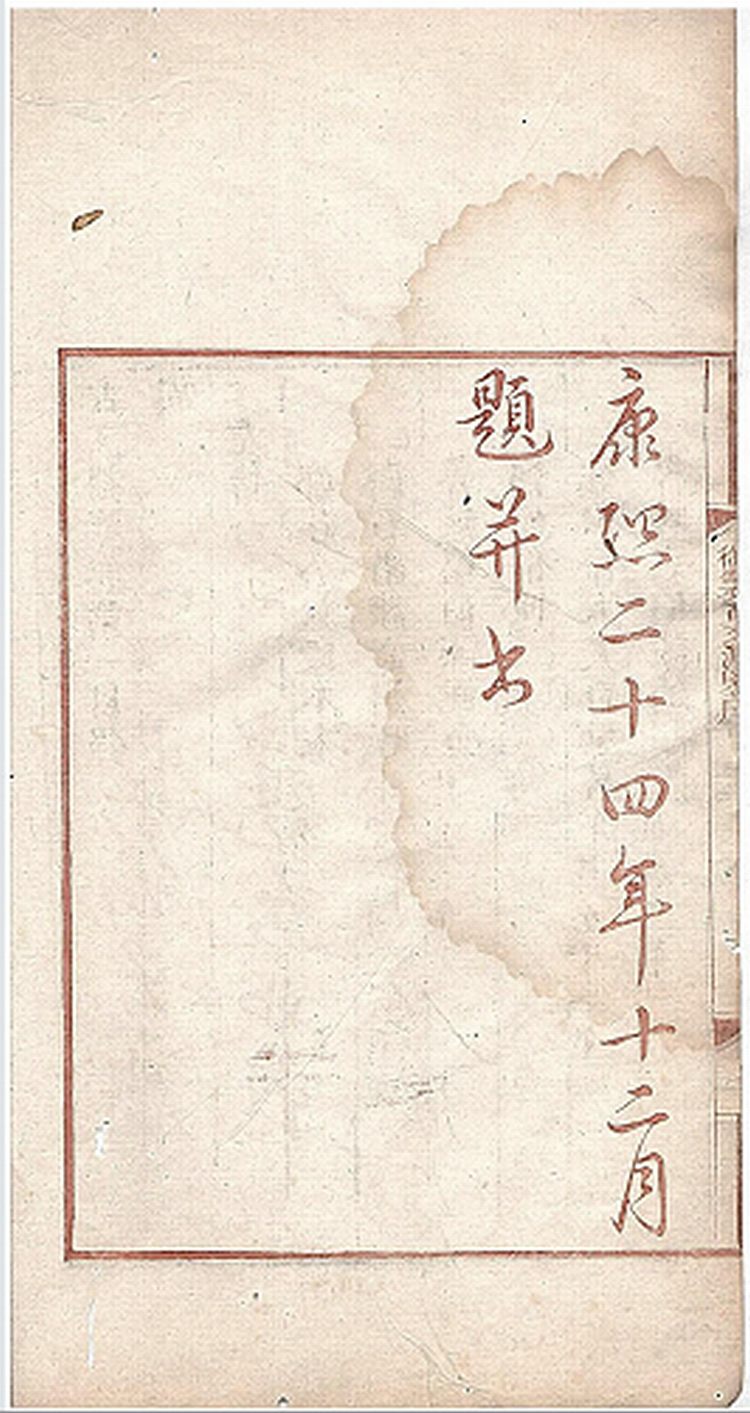 康熙二十四年十二月
題并書